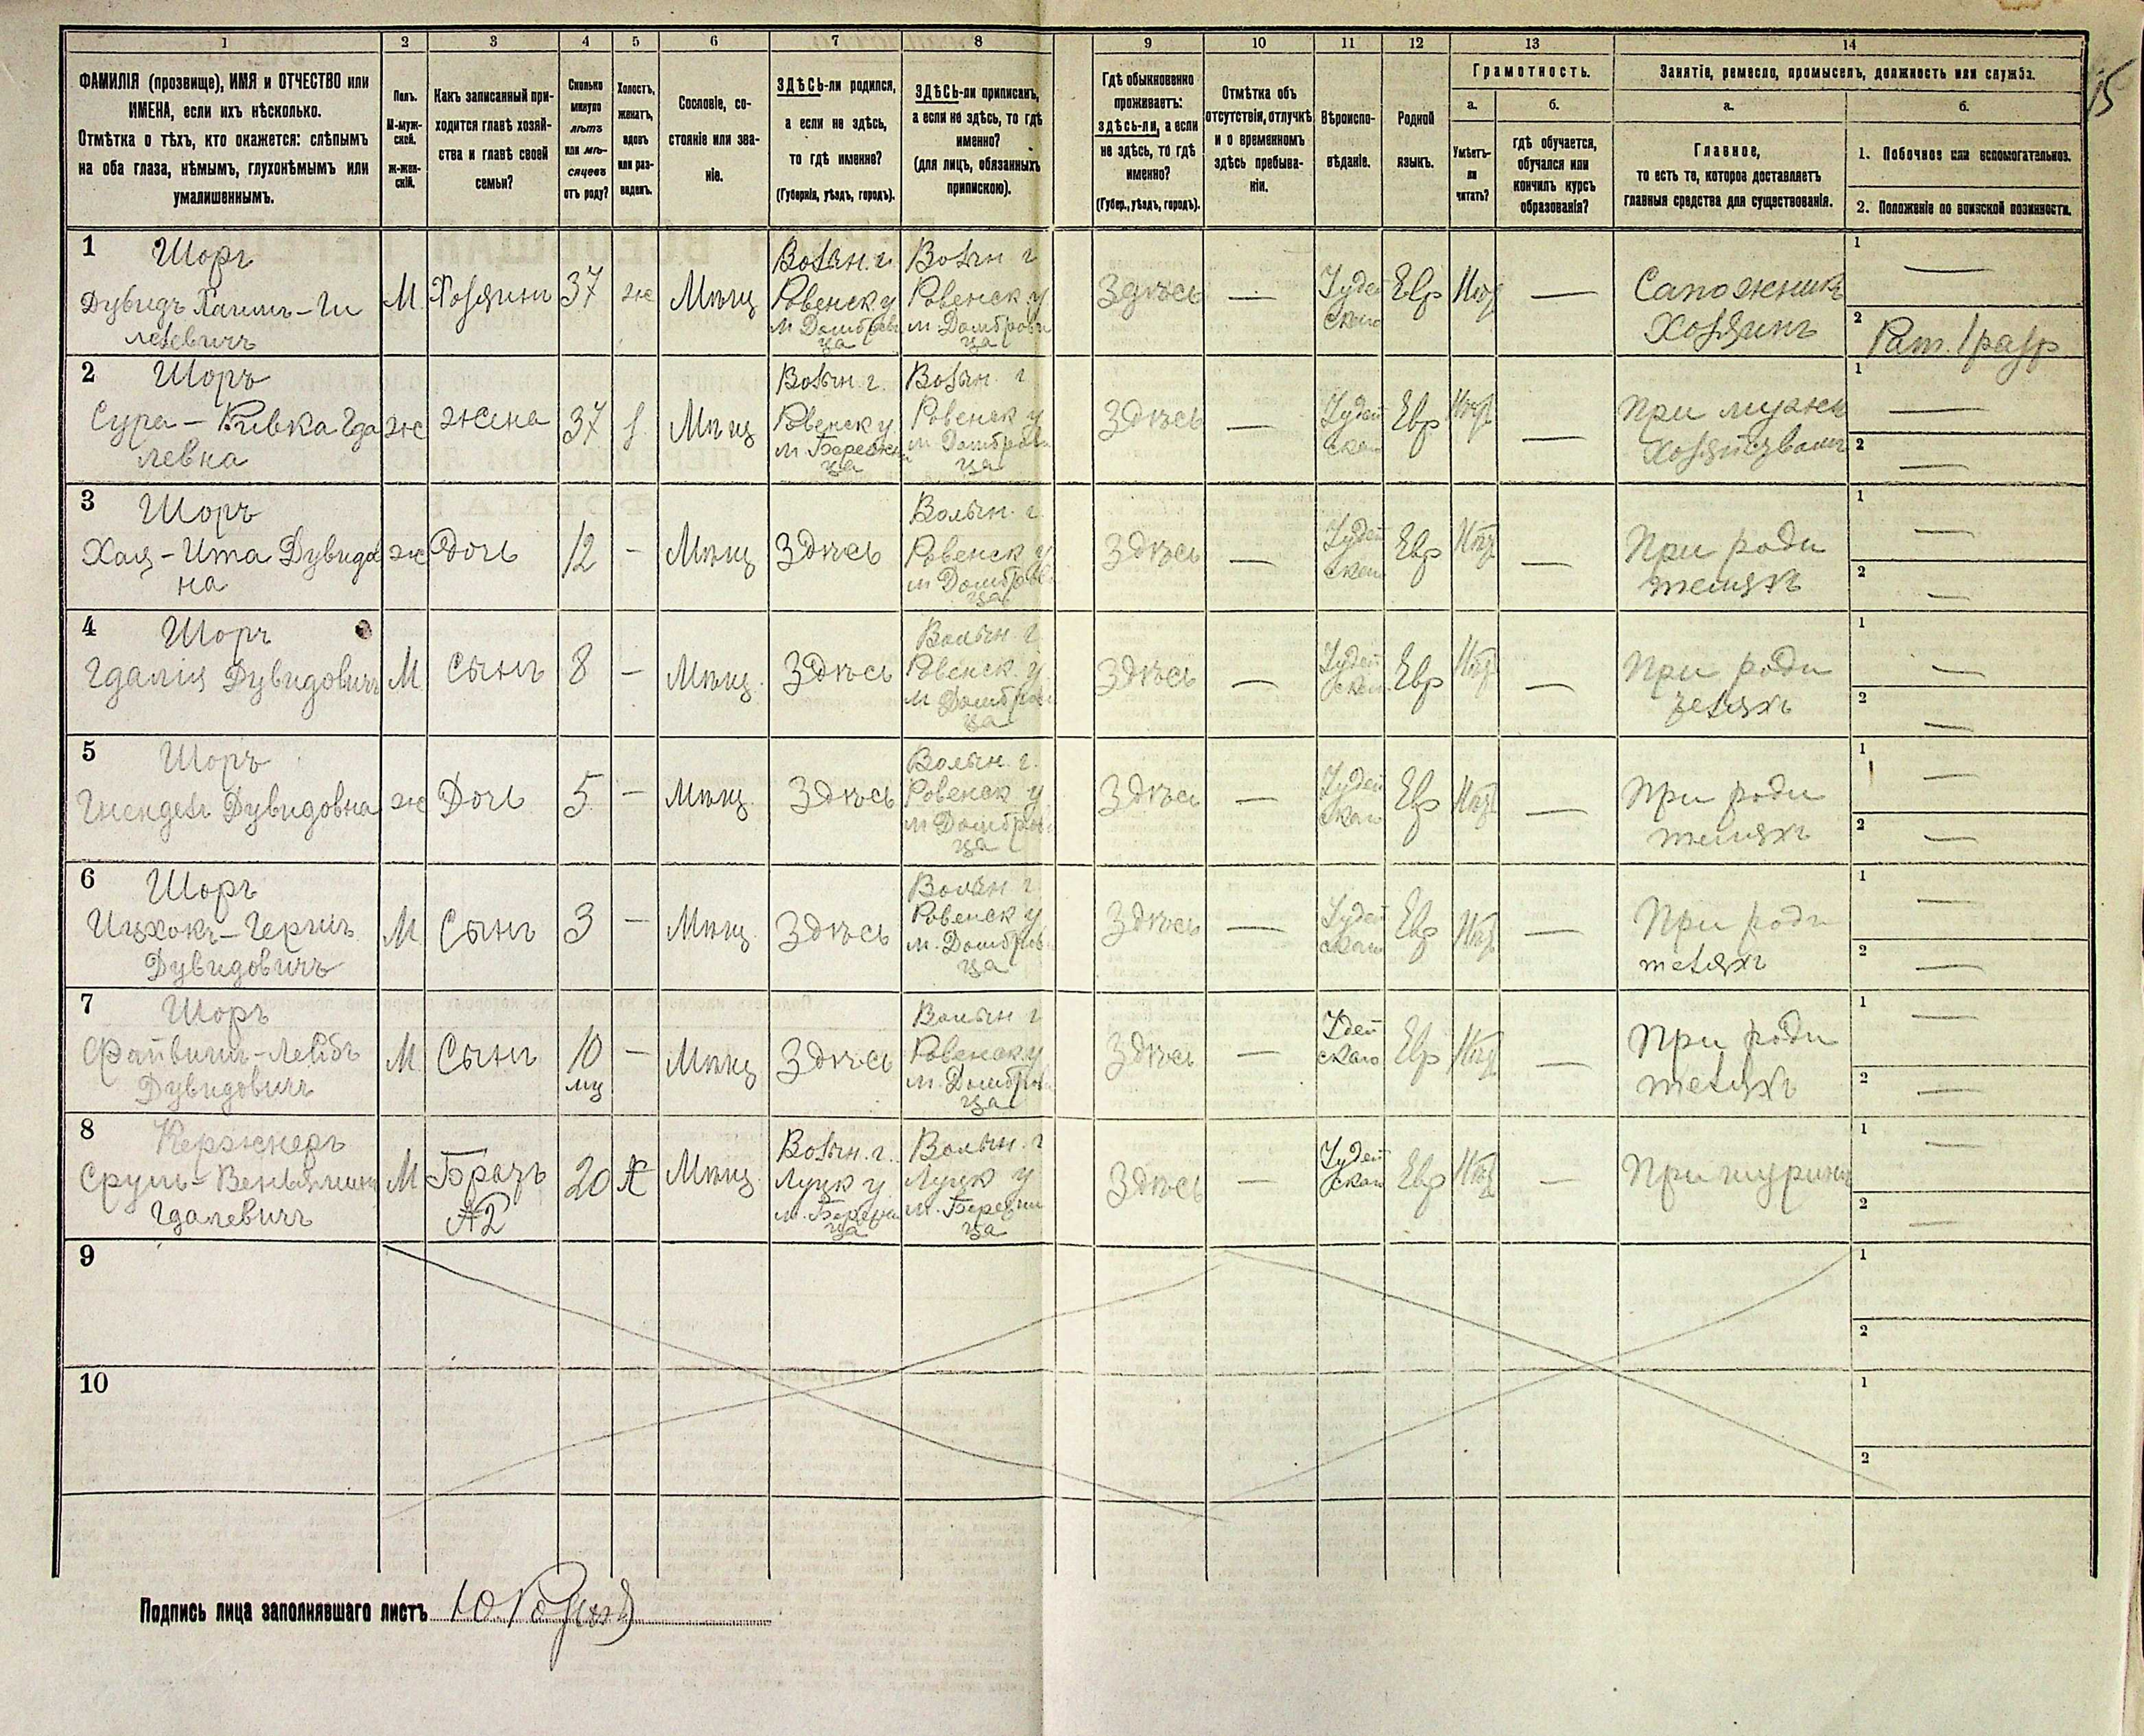 1 2 3 4 5 6 7 8 9 10 11 12 13 14
15
ФАМИЛІЯ (прозвище), ИМЯ и ОТЧЕСТВО или
ИМЕНА, если ихъ нѣсколько.
Отмѣтка о тѣхъ, кто окажется: слѣпымъ
на оба глаза, нѣмымъ, глухонѣмымъ или
умалишеннымъ.
Полъ.
М-муж-
ской.
Ж-жен-
скій.
Какъ записанный при-
ходится главѣ хозяй-
ства и главѣ своей
семьи?
Сколько
минуло
лѣтъ
или мѣ-
сяцевъ
отъ роду?
Холостъ,
женатъ,
вдовъ
или раз-
веденъ.
Сословіе, со-
стояніе или зва-
ніе.
ЗДѢСЬ-ли родился,
а если не здѣсь,
то гдѣ именно?
(Губернія, уѣздъ, городъ).
ЗДѢСЬ-ли приписанъ,
а если не здѣсь, то гдѣ
именно?
(для лицъ, обязанныхъ
припискою).
Гдѣ обыкновенно
проживаетъ:
здѣсь-ли, а если
не здѣсь, то гдѣ
именно?
(Губер., уѣздъ, городъ).
Отмѣтка объ
отсутствіи, отлучкѣ
и о временномъ
здѣсь пребыва-
ніи.
Вѣроиспо-
вѣданіе.
Родной
языкъ.
Грамотность.
а.
Умѣетъ-
ли
читать?
б.
гдѣ обучается,
обучался или
кончилъ курсъ
образованія?
Занятіе, ремесло, промыселъ, должность или служба.
а.
Главное,
то есть то, которое доставляетъ
главныя средства для существованія.
б.
1. Побочное или вспомогательное.
2. Положеніе по воинской повинности.
1 Шоръ
Дувидъ Хаимъ-Ги
левичъ
М
Хозяинъ
37
ж
Мѣщ
Волын. г.
Ровенск у
м Домброви
ца
Волын г
Ровенск у
м Домброви
ца
Здѣсь
—
Іудей
скаго
Евр
—
Сапожникъ
Хозяинъ
1 —
2
2 Шоръ
Сура-Ривка Гда
левна
ж
жена
37
з
Мѣщ
Волын г.
Ровенск у
м Бережни
ца
Волын. г
Ровенск у
м Домброви
ца
Здѣсь
—
Іудей
скаго
Евр
—
При мужѣ
1 —
2 —
3 Шоръ
Хая-Ита Дувидов
на
ж
Дочь
12
—
Мѣщ
Здѣсь
Волын. г
Ровенск у
м Домброви
ца
Здѣсь
—
Іудей
скаго
Евр
—
При роди
теляхъ
1 —
2 —
4 Шоръ
Гдалія Дувидовичъ
М
Сынъ
8
—
Мѣщ.
Здѣсь
Волын. г
Ровенск. у
м Домброви
ца
Здѣсь
—
Іудей
скаго
Евр
—
При роди
теляхъ
1 —
2 —
5 Шоръ
Гнендель Дувидовна
ж
Дочь
5
—
Мѣщ.
Здѣсь
Волын. г.
Ровенск у
м Домброви
ца
Здѣсь
—
Іудей
скаго
Евр
—
При роди
теляхъ
1 —
2 —
6 Шоръ
Ицхокъ-Гершъ
Дувидовичъ
М
Сынъ
3
—
Мѣщ.
Здѣсь
Волын г
Ровенск у
м. Домброви
ца
Здѣсь
—
Іудей
скаго
Евр
—
При роди
теляхъ
1 —
2 —
7 Шоръ
Файвишъ-Лейбъ
Дувидовичъ
М
Сынъ
10
мц
—
Мѣщ
Здѣсь
Волын г
Ровенск у
м. Домброви
ца
Здѣсь
—
Іудей
скаго
Евр
—
При роди
теляхъ
1 —
2 —
8 Кержнеръ
Сруль-Веньяминъ
Гдалевичъ
М
Братъ
№2
20
Х
Мѣщ.
Волын. г.
Луцк у
м. Бережни
ца
Волын. г
Луцк у
м. Бережни
ца
Здѣсь
—
Іудей
скаго
Евр
—
При шуринѣ
1 —
2 —
9
1
2
10
1
2
Подпись лица заполнявшаго листъ